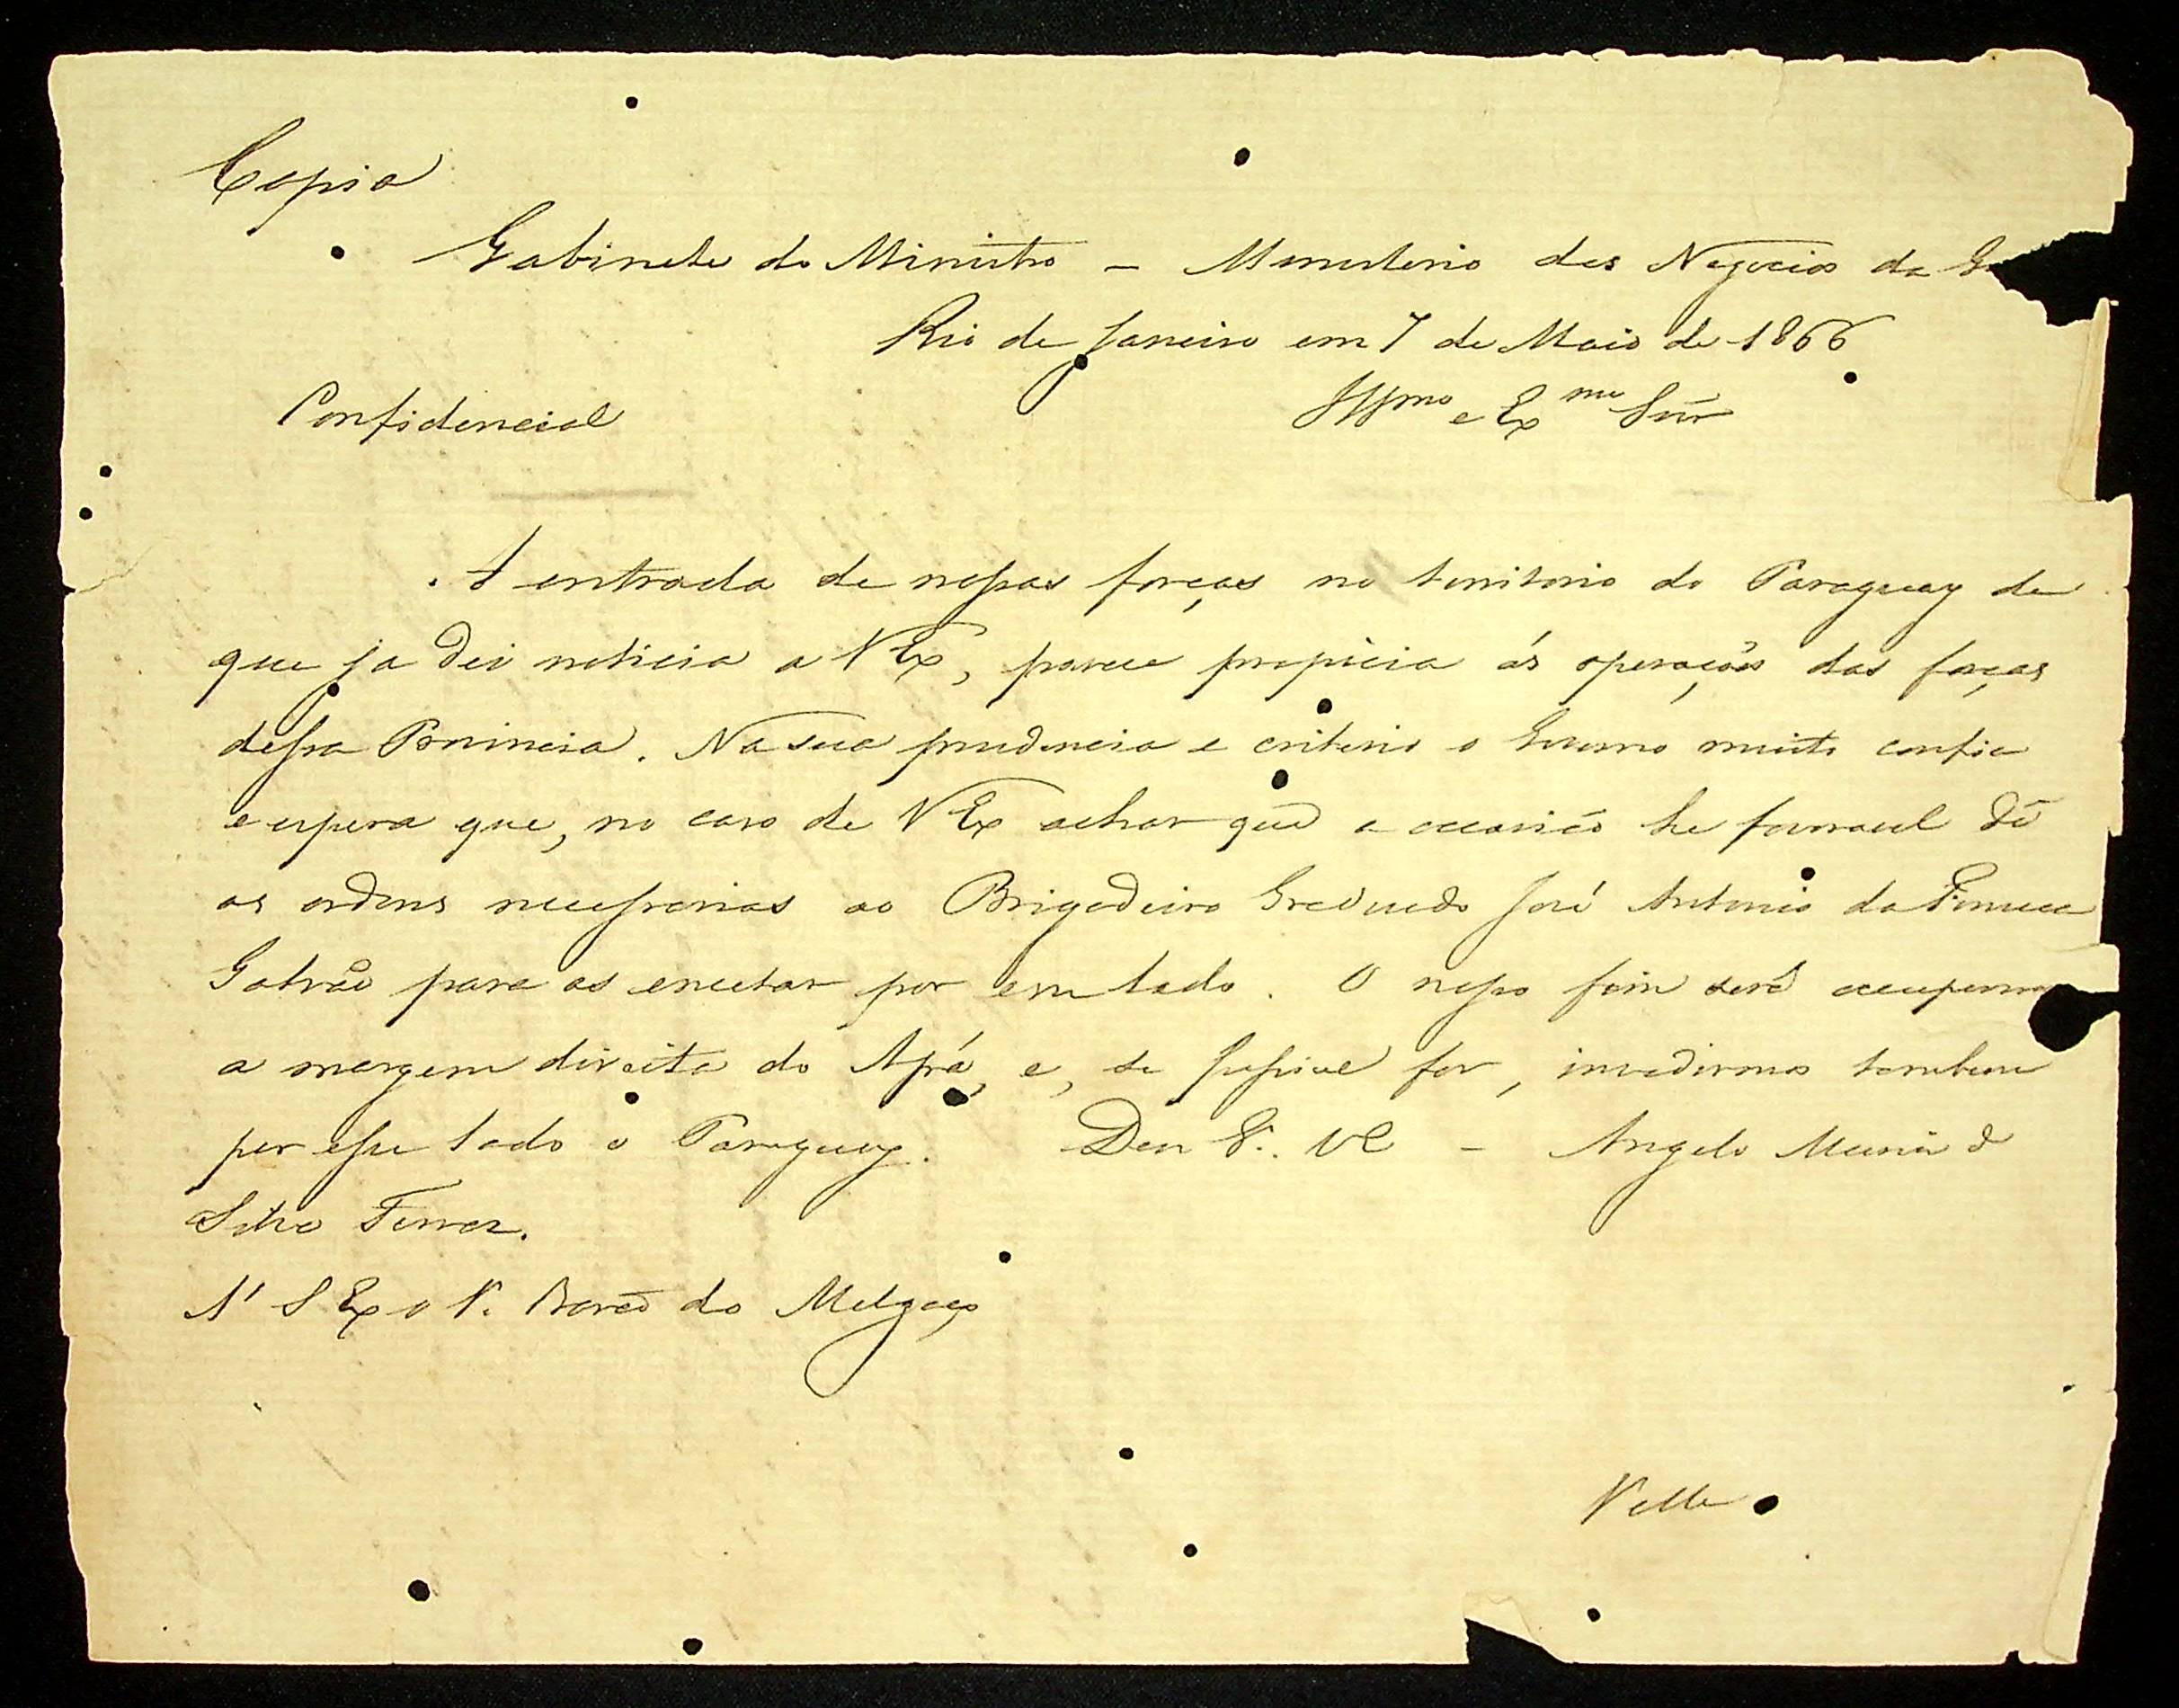 Copia
Gabinete do Ministro - Ministerio dos Negocios da
Rio de Janeiro em 7 de Maio de 1866
Confidencial
Illmo e Exmo Snr
A entrada de nossas forças no territorio do Paraguay de
que ja dei noticia a V Ex, parece propicia ás operações das forças
dessa Provincia. Na sua prudencia e criterio o Governo muito confia
e espera que, no caso de V Ex achar que a occasião he favoravel dê
as ordens necessarias ao Brigadeiro Graduado José Antonio da Fonseca
Galvão para as executar por em lado. O nosso fim será occuparmos
a margem direita do Apá, e, se possivel for, invadirmos tambem
por esse lado o Paraguay. Deos G. VE - Angelo Muniz da
Silva Ferraz.
A' S Ex o V. Barão do Melgaço